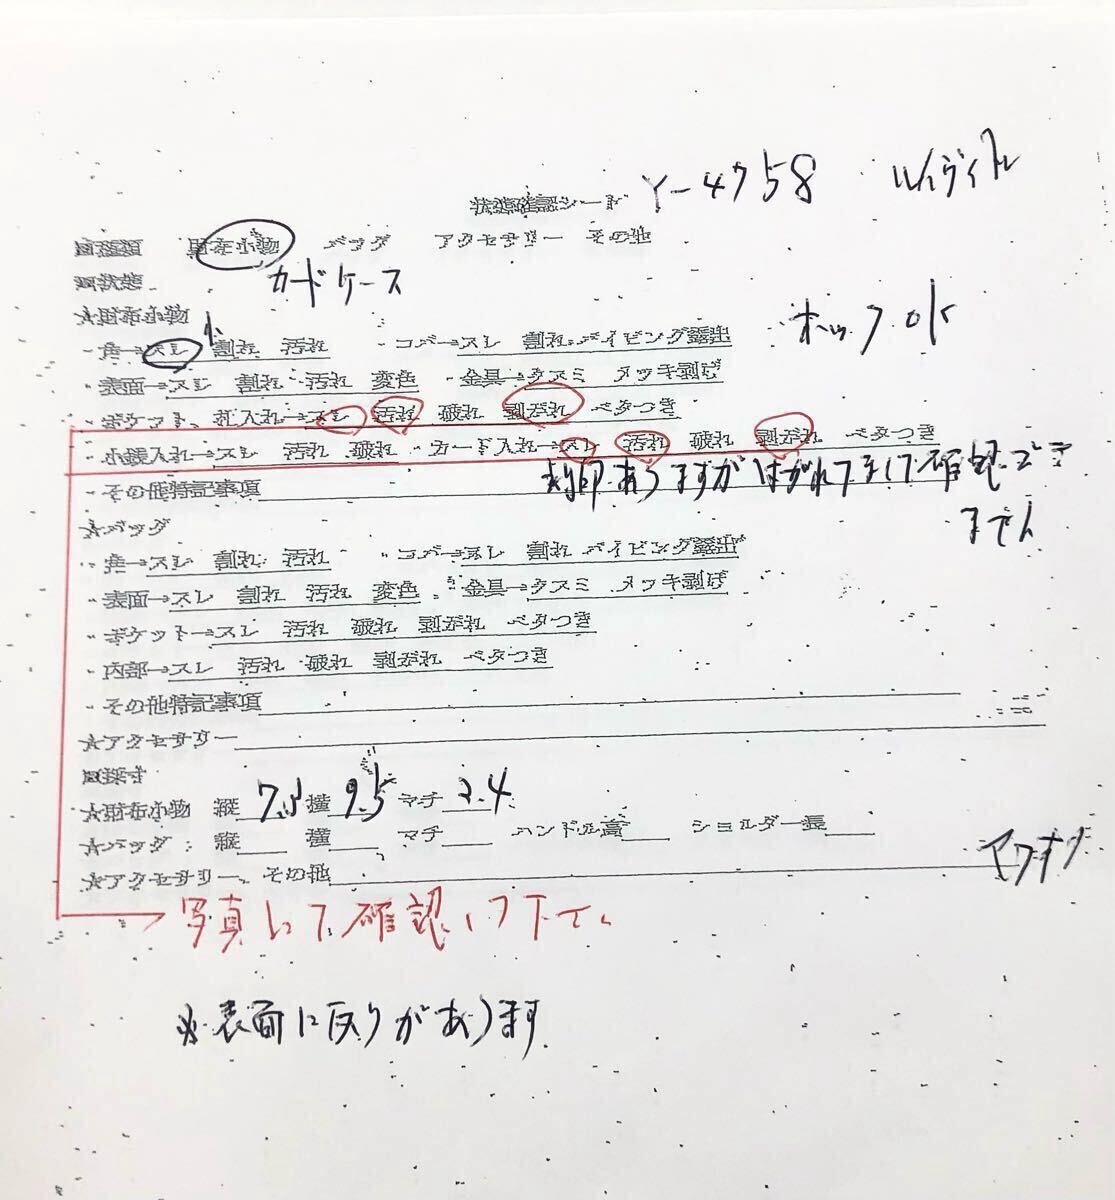 状態確認シート Y-4758 ルイヴィトン
財布小物 バッグ アクセサリー その他
カードケース
□状態
★財布小物 ホック ok
・角→スレ 小 割れ 汚れ ・コバ→スレ 割れ パイピング露出
・表面→スレ 割れ 汚れ 変色 ・金具→クスミ メッキ剥げ
・ポケット、札入れ→スレ 汚れ 破れ 剥がれ ベタつき
・小銭入れ→スレ 汚れ 破れ ・カード入れ→スレ 汚れ 破れ 剥がれ ベタつき
・その他特記事項 刻印ありますがはがれてまして確認でき
ません
★バッグ
・角→スレ 割れ 汚れ ・コバ→スレ 割れ パイピング露出
・表面→スレ 割れ 汚れ 変色 ・金具→クスミ メッキ剥げ
・ポケット→スレ 汚れ 破れ 剥がれ ベタつき
・内部→スレ 汚れ 破れ 剥がれ ベタつき
・その他特記事項
★アクセサリー
□採寸
★財布小物 縦 7.5 横 9.5 マチ 2.4
★バッグ: 縦 横 マチ ハンドル高 ショルダー長
★アクセサリー、その他
写真にて確認して下さい
※表面に反りがあります